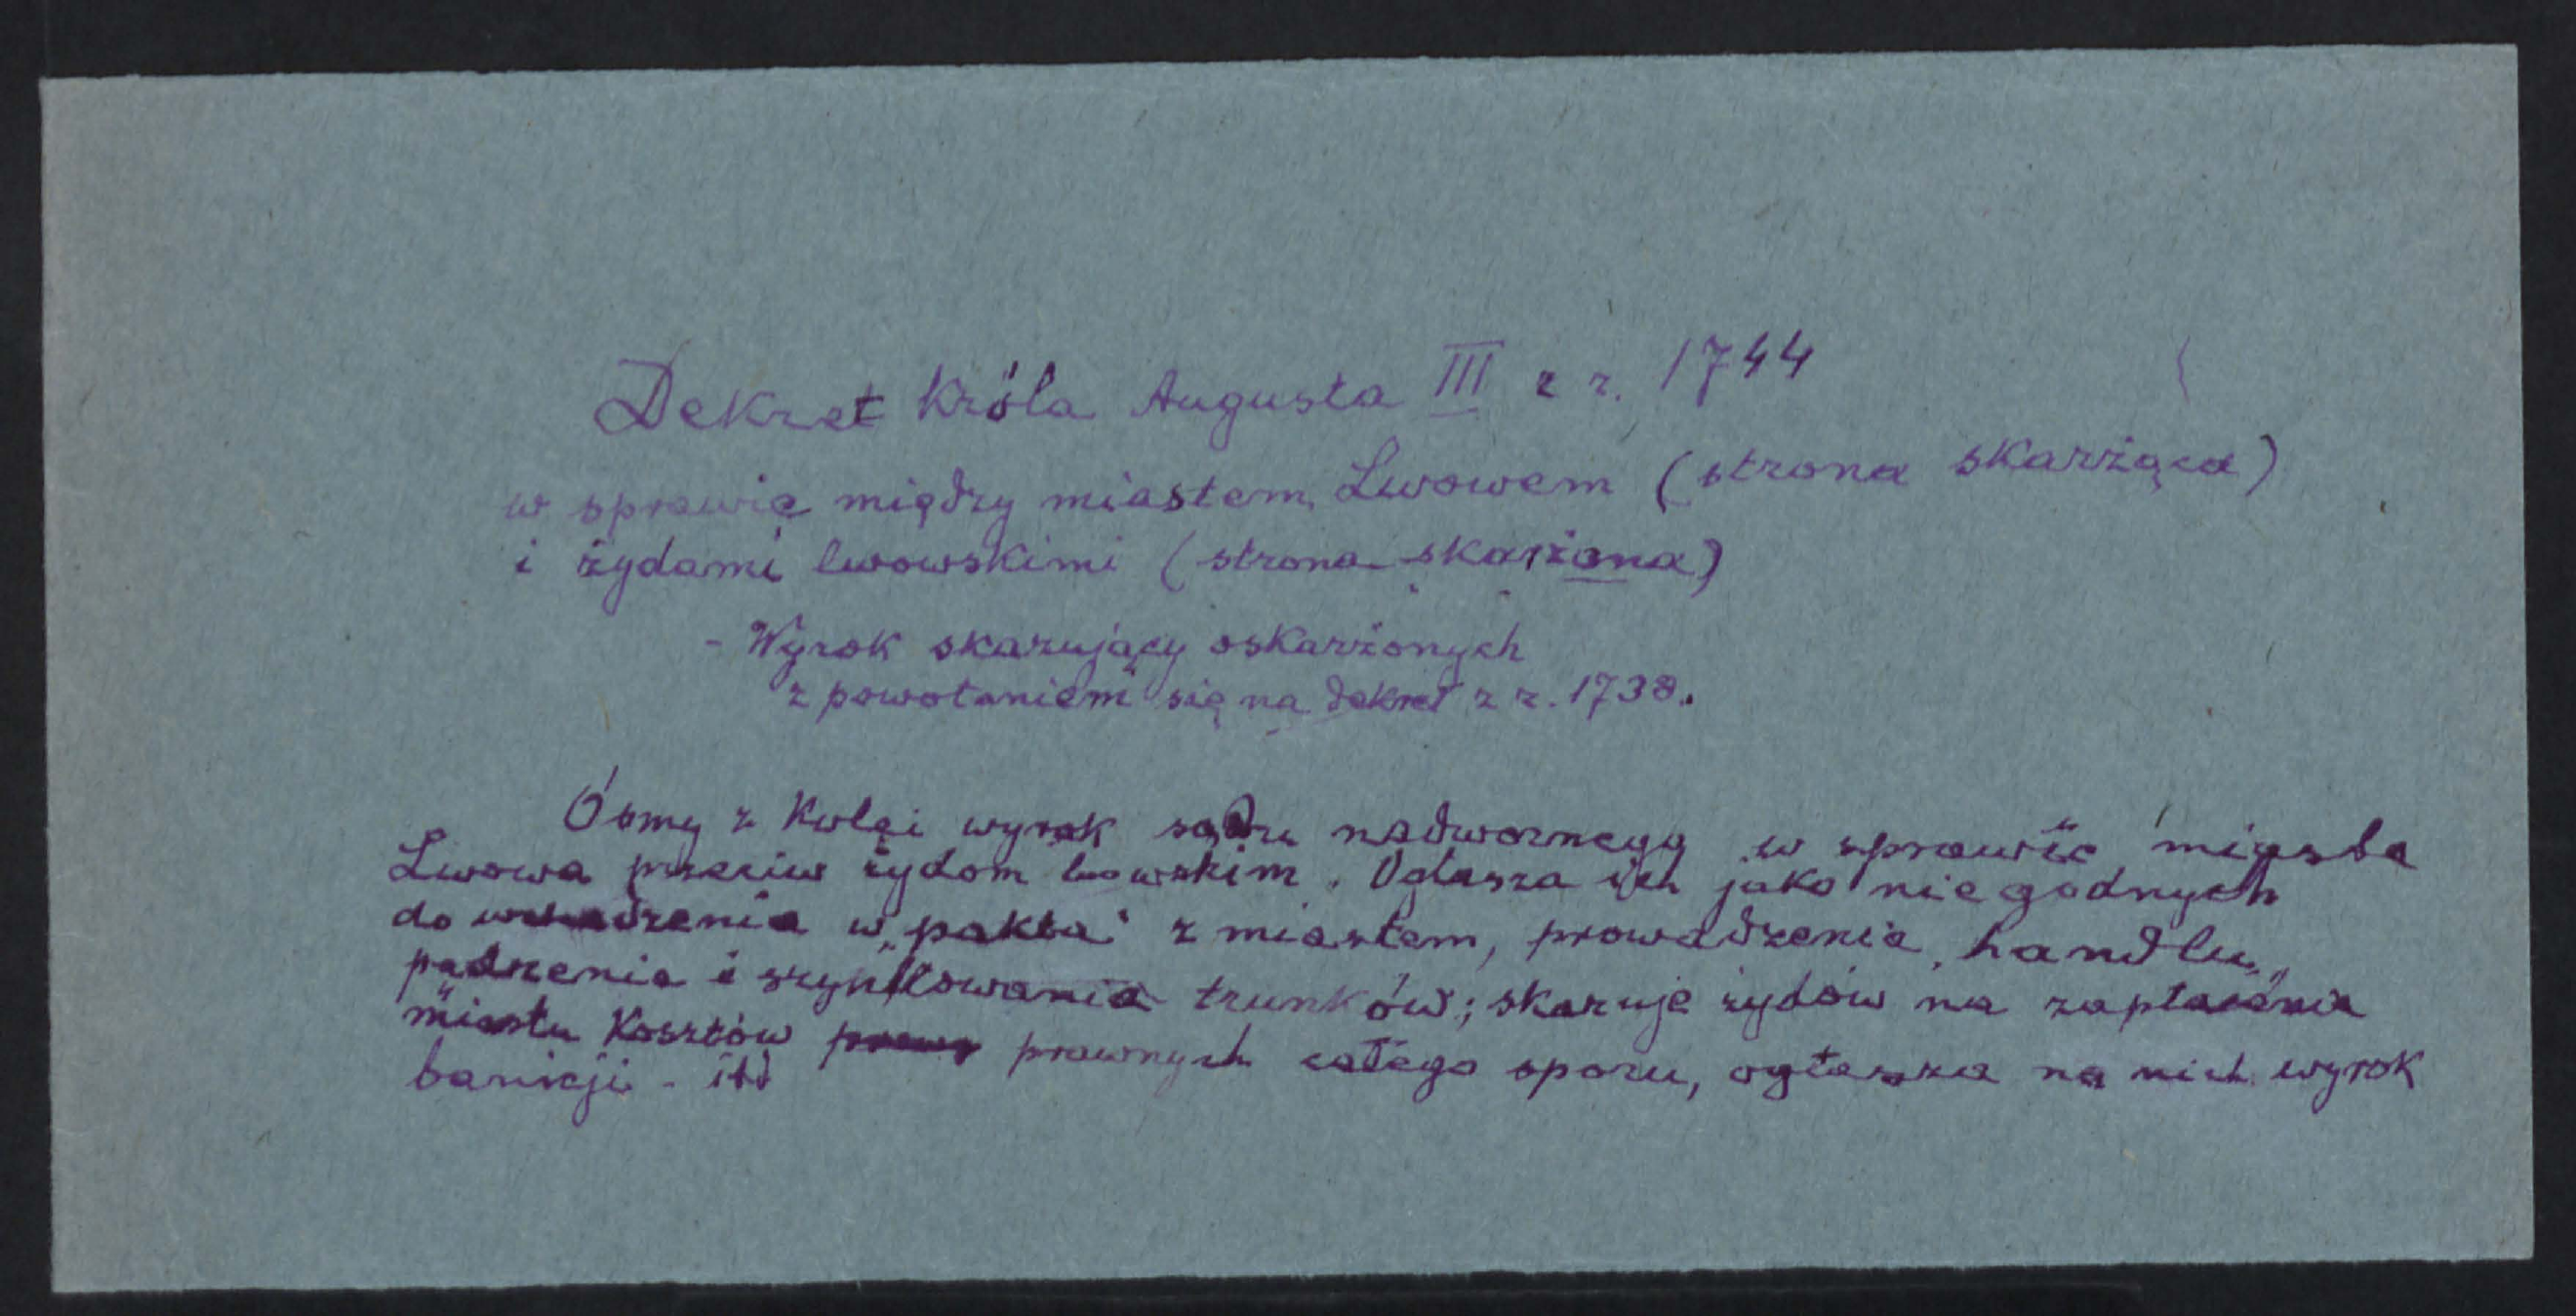 Dekret Króla Augusta III z r. 1744
w sprawie między miastem Lwowem (strona skarżąca)
i żydami lwowskimi (strona skarżona)
- Wyrok skazujący oskarżonych
z powołaniem się na dekret z r. 1738.
Ósmy z kolei wyrok sądu nadwornego w sprawie miasta
Lwowa przeciw żydom lwowskim. Ogłasza ich jako nie godnych
do wchodzenia w „pakta" z miastem, prowadzenia handlu,
pędzenia i szynkowania trunków; skazuje żydów na zapłacenie
miastu kosztów prawnych całego sporu, ogłasza na nich wyrok
banicji - itd